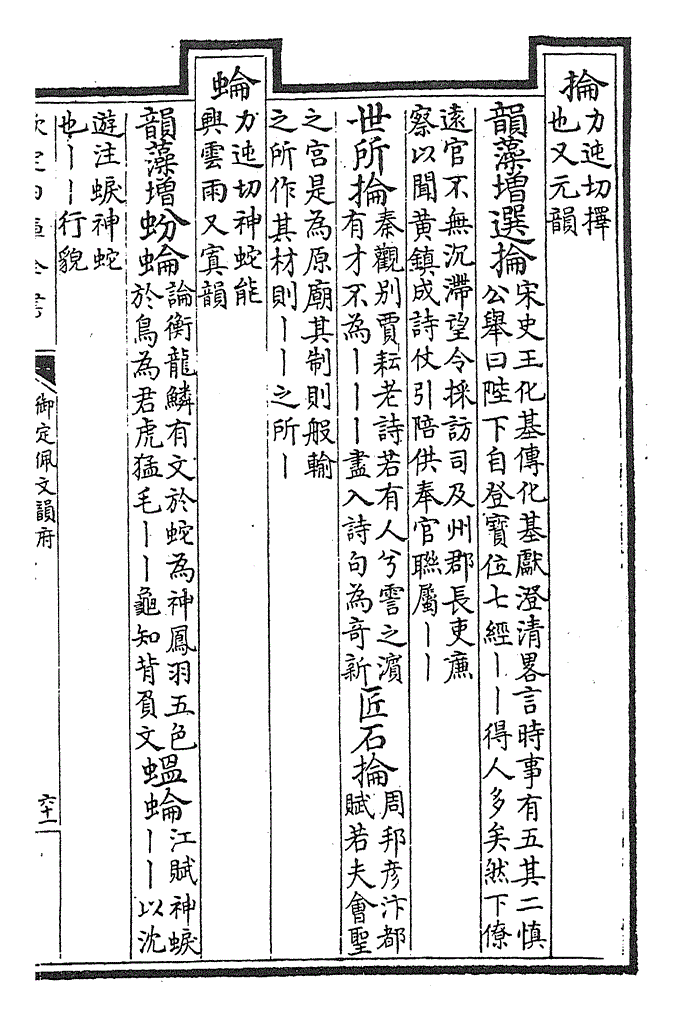 掄
力迍切擇
也又元韻
韻藻增選掄
宋史王化基傳化基獻澄清畧言時事有五其二慎
公舉曰陛下自登寳位七經丨丨得人多矣然下僚
遠官不無沉滯望令採訪司及州郡長吏㢘
察以聞黃鎮成詩仗引陪供奉官聯屬丨丨
世所掄
秦觀别賈耘老詩若有人兮霅之濵
有才不為丨丨丨盡入詩句為竒新
匠石掄
周邦彦汴都
賦若夫會聖
之宮是為原廟其制則般輸
之所作其材則丨丨之所丨
蜦
力迍切神蛇能
興雲雨又寘韻
韻藻增蚡蜦
論衡龍鱗有文於蛇為神鳳羽五色
於鳥為君虎猛毛丨丨龜知背負文
蝹蜦
江賦神蜧
丨丨以沈
遊注蜧神蛇
也丨丨行貌
欽定四庫全書
御定佩文韻府
六十二